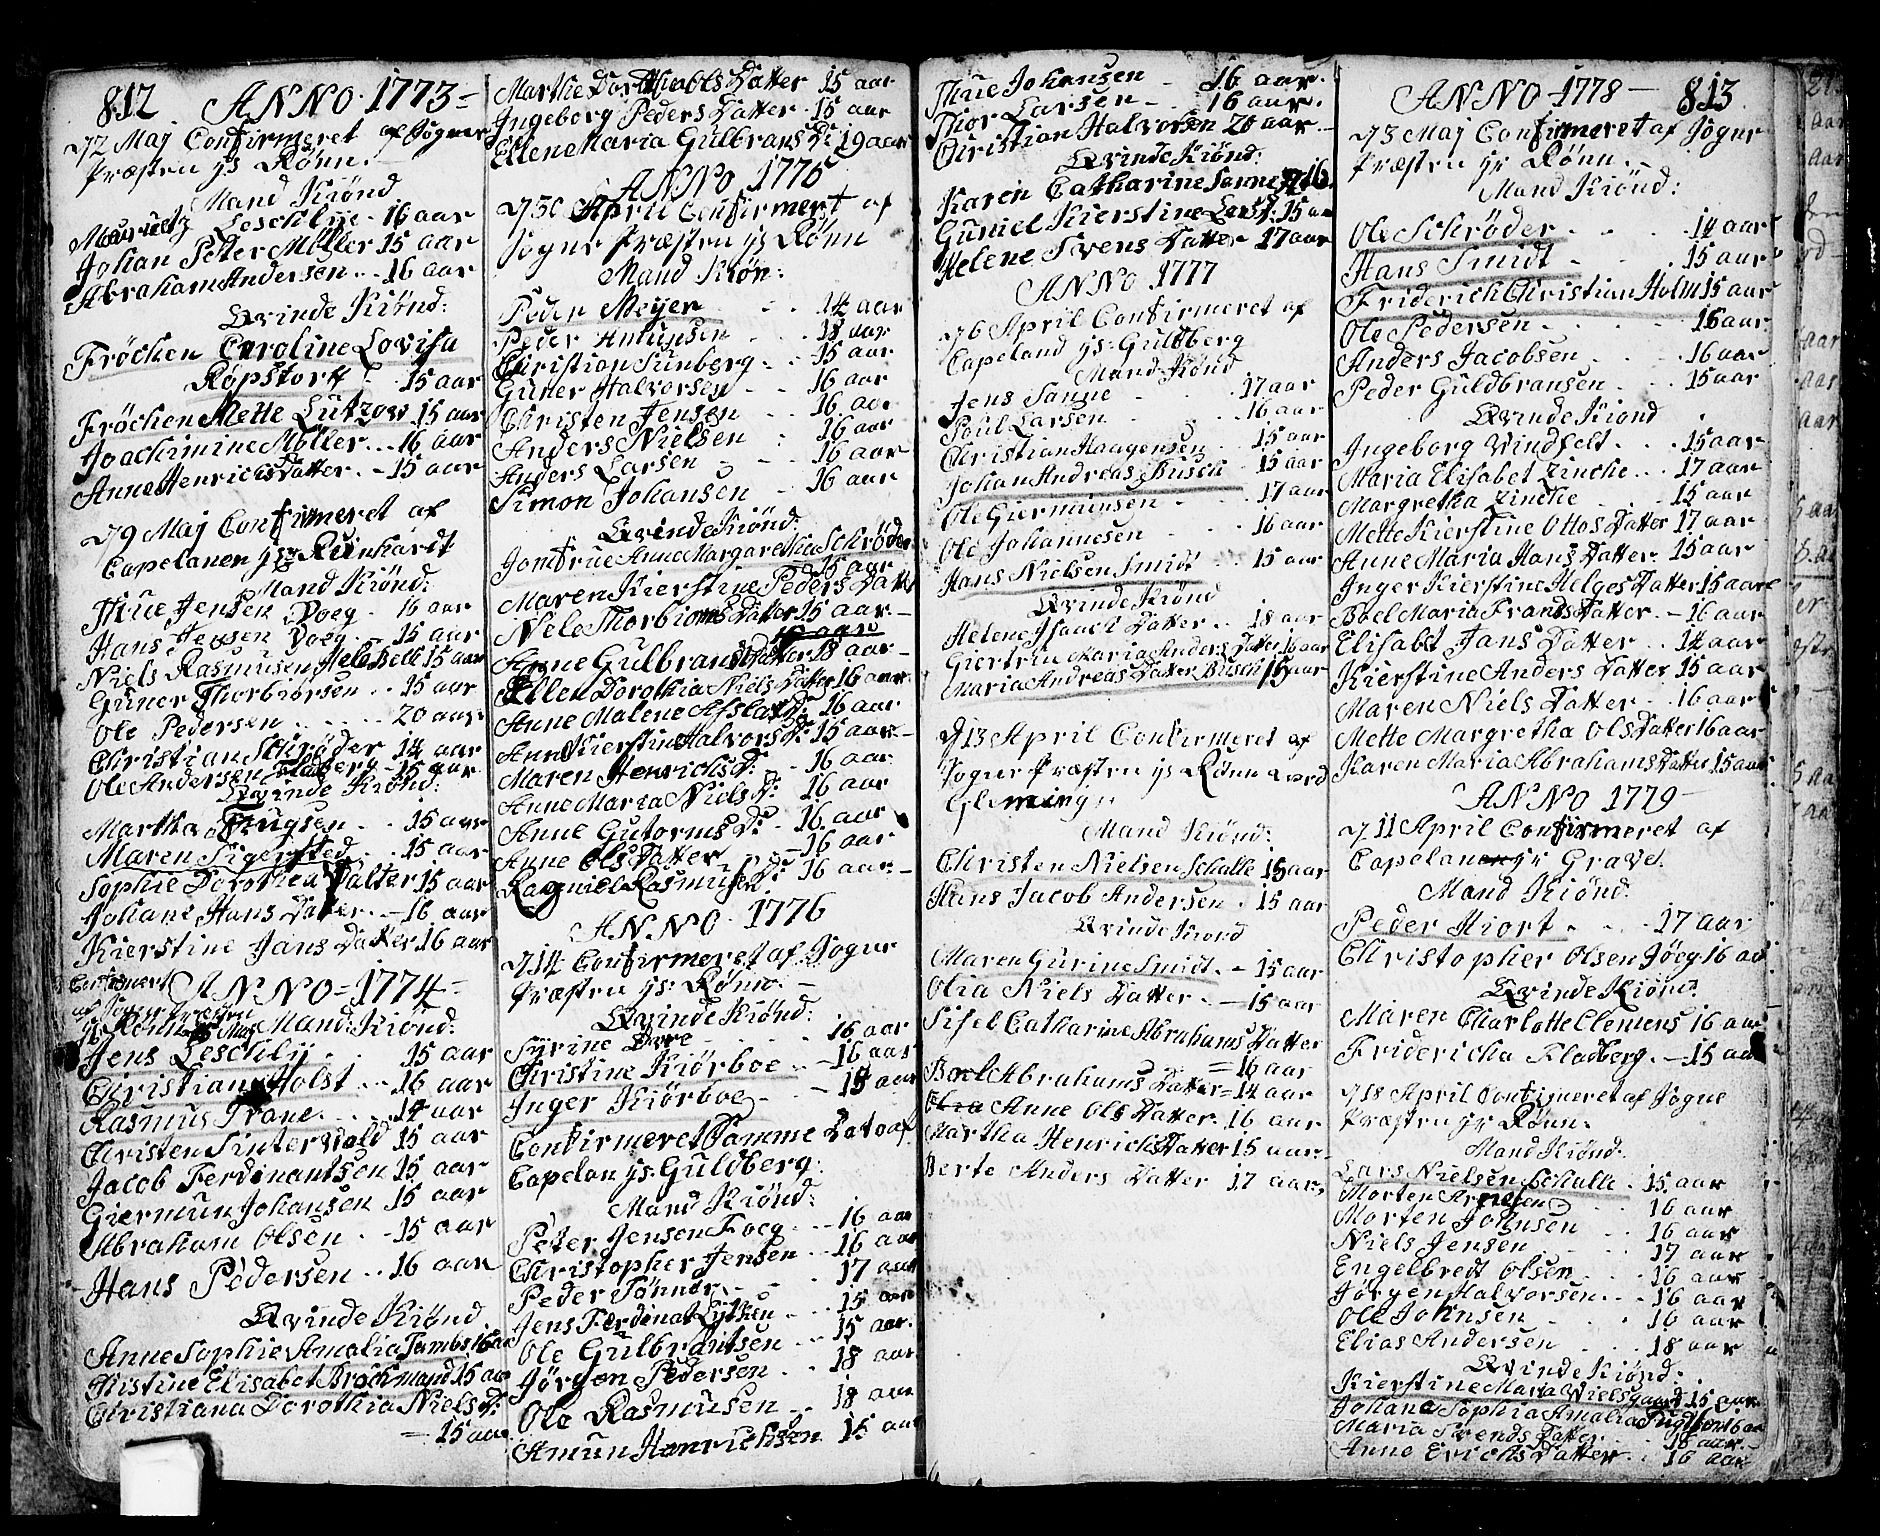 812. ANNO 1773
72 Maj Confirmeret af Sogne
Præsten hr Rønn.
Mand Kiønd
Mauritz Leschly - 16 aar
Johan Peter Møller 15 aar
Abraham Andersen .. 16 aar
Qvinde Kiønd:
Frøchen Caroline Lovisa
Røpstorff - 15 aar
Frøchen Mette Lützow 15 aar
Joachimine Møller .. 16 aar
Anne Henrichs Datter. - 15 aar
79 Maj Confirmeret af
Capelanen hr Reinhardt
Mand Kiønd:
Thue Jensen Doeg . 16 aar
Hans Jensen Doeg - 15 aar
Niels Rasmusen 15 aar
Guner Thorbiørsen .. 15 aar
Ole Pedersen ..... 20 aar
Christian Schrøder 14 aar
Ole Andersen Fladberg - 15 aar
Qvinde Kiønd:
Martha .. 15 aar
Maren Sigersted .. 15 aar
Sophie Dorothea Valter 15 aar
Johane Hans Datter. - 16 aar
Kierstine Jans Datter 16 aar
Confirmert
ANNO = 1774 =
af Sogne Præsten
hr Rønn Maj Mand Kiønd:
Jens Leschly .. 15 aar
Christian Holst .. 16 aar
Rasmus Trane .... 14 aar
Christen Sintervold 15 aar
Jacob Ferdinantsen 15 aar
Giermun Johansen 15 aar
Abraham Olsen .. 15 aar
Hans Pedersen .. 16 aar
Qvinde Kiønd.
Anne Sophie Amalia 16 aar
Christine Elisabet Brochmand 15 aar
Christiana Dorothia Niels D:
= 15 aar
Marthe Dorthe Ols Datter 15 aar
Ingeborg Peders Datter. 15 aar
Ellen Maria Gulbrans D: 19 aar
ANNO 1775
730 April Confirmert af
Sogne Præsten hr Rønn
Mand Kiøn:
Peder Meyer - . . 14 aar
Peder Amunsen ... 18 aar
Christian Sunberg . . 15 aar
Guner Halvorsen .. 16 aar
Christen Jensen .. 16 aar
Anders Nielsen : 16 aar
Anders Larsen - - 16 aar
Simon Johansen - 16 aar
Qvinde Kiønd:
Jomfrue Anne Margaretha Schrøder
15 aar
Maren Kierstine Peders Datter
Nele Thorbiørns Datter 15 aar. -
Anne Gulbrands Datter 18 aar -
Ellen Dorothia Niels Datter 16 aar.
Anne Malene Asslas D: 16 aar
Anne Kierstine Halvors D: 15 aar -
Maren Henrichs D: - 16 aar
Anne Maria Niels D: 16 aar
Anne Gutorms D: . 16 aar
Anne Ols Datter - 16 aar
Ragniel Rasmus D: 16 aar. -
ANNO 1776
714 Confirmeret af Sogne
Præsten hr. Rønn. -
Qvinde Kiønd:
Syrine .... 16 aar
Christine Kiørboe. - 16 aar
Inger Kiørboe, - - 15 aar
Confirmeret Samme Dato af
Capelan hr: Guldberg:
Mand Kiønd:
Peter Jensen Foeg - - 16 aar
Christopher Jensen .. 16 aar
Peder Tønner .. - . 17 aar
Jens Ferdinat Lytken .. 15 aar
Ole Gulbrantsen .. 15 aar.
Jørgen Pedersen . 18 aar
Ole Rasmusen . 18 aar
Amun Henrichsen 15 aar
Thue Johansen - 16 aar.
Thor Larsen - . 16 aar.
Christian Halvorsen 20 aar. -
Qvinde Kiønd:
Karen Catharine Sanne 16.
Guniel Kierstine Lars D: 15 aar
Helene Svens Datter 17 aar
ANNO 1777
76 April Confirmeret af
Capeland hr: Guldberg
Mand Kiønd
Jens Sanne - . . . 17 aar
Poul Larsen - - . . 16 aar
Christian Haagensen .. 15 aar
Johan Andreas Busch . 15 aar
Ole Giermunsen - . . 17 aar
Ole Johannesen - . . 16 aar
Hans Nielsen Smidt .. 15 aar
Qvinde Kiønd
Helene Isaacs Datter .. 18 aar
Giertrue Maria Anders Datter 16 aar
Maria Andreas Datter Busch 15 aar
713 April Confirmeret af
Sogne Præsten hr Rønn ved
Gleming:
Mand Kiønd:
Christen Nielsen Schalle 15 aar
Hans Jacob Andersen . 15 aar
Qvinde Kiønd
Maren Gurine Smidt. - 15 aar
Olia Niels Datter. - = 15 aar
Sisel Catharine Abrahams Datter
= 16 aar
Boel Abrahams Datter = 14 aar
Anne Ols Datter . 16 aar
Martha Henrichs Datter 15 aar. -
Berte Anders Datter 17 aar.
ANNO - 1778 - 813
73 Maj Confirmeret af Sogne
Præsten hr Rønn. -
Mand Kiønd:
Ole Schrøder - . . . 14 aar
Hans Smidt - . . . 15 aar
Friderich Christian Holm 15 aar
Ole Pedersen . . - . . 16 aar
Anders Jacobsen . . . 16 aar
Peder Guldbransen . . . 15 aar
Qvinde Kiønd
Ingeborg Vindfelt . . . 15 aar
Maria Elisabet Zincke .. 17 aar
Margretha Zincke . . 15 aar
Mette Kierstine Ottos Datter 17 aar
Anne Maria Jans Datter. 15 aar
Inger Kierstine Helges Datter 15 aar
Boel Maria Frands Datter. - 16 aar
Elisabt Jans Datter .. 14 aar
Kierstine Anders Datter 15 aar
Maren Niels Datter . 16 aar
Mette Margretha Ols Datter 16 aar
Karen Maria Abrahams Datter 15 aar
ANNO 1779 -
711 April Confirmeret af
Capelan hr Gravel
Mand Kiønd:
Peder Hiort . . . . 17 aar
Christopher Olsen Jøeg 16 aar
Qvinde Kiønd
Maren Charlotte Clemens 16 aar
Fridericha Fladberg. - 15 aar
718 April Confirmeret af Sogne
Præsten hr Rønn.
Mand Kiønd:
Lars Nielsen Schalle . 15 aar
Morten Arnesen . . 16 aar
Morten Johnsen . . 16 aar
Niels Jensen . . . . 17 aar
Engelbredt Olsen . . 16 aar
Jørgen Halvorsen . . 16 aar
Ole Johnsen . . . 16 aar
Elias Andersen . . . 18 aar
Qvinde Kiønd:
Kierstine Maria Nielsgaard 15 aar
Johane Sophia Amalia 16 aar
Maria Svends Datter . . 18 aar. -
Anne Erichs Datter . . 16 aar